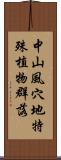 中山風穴地特
殊植物群落